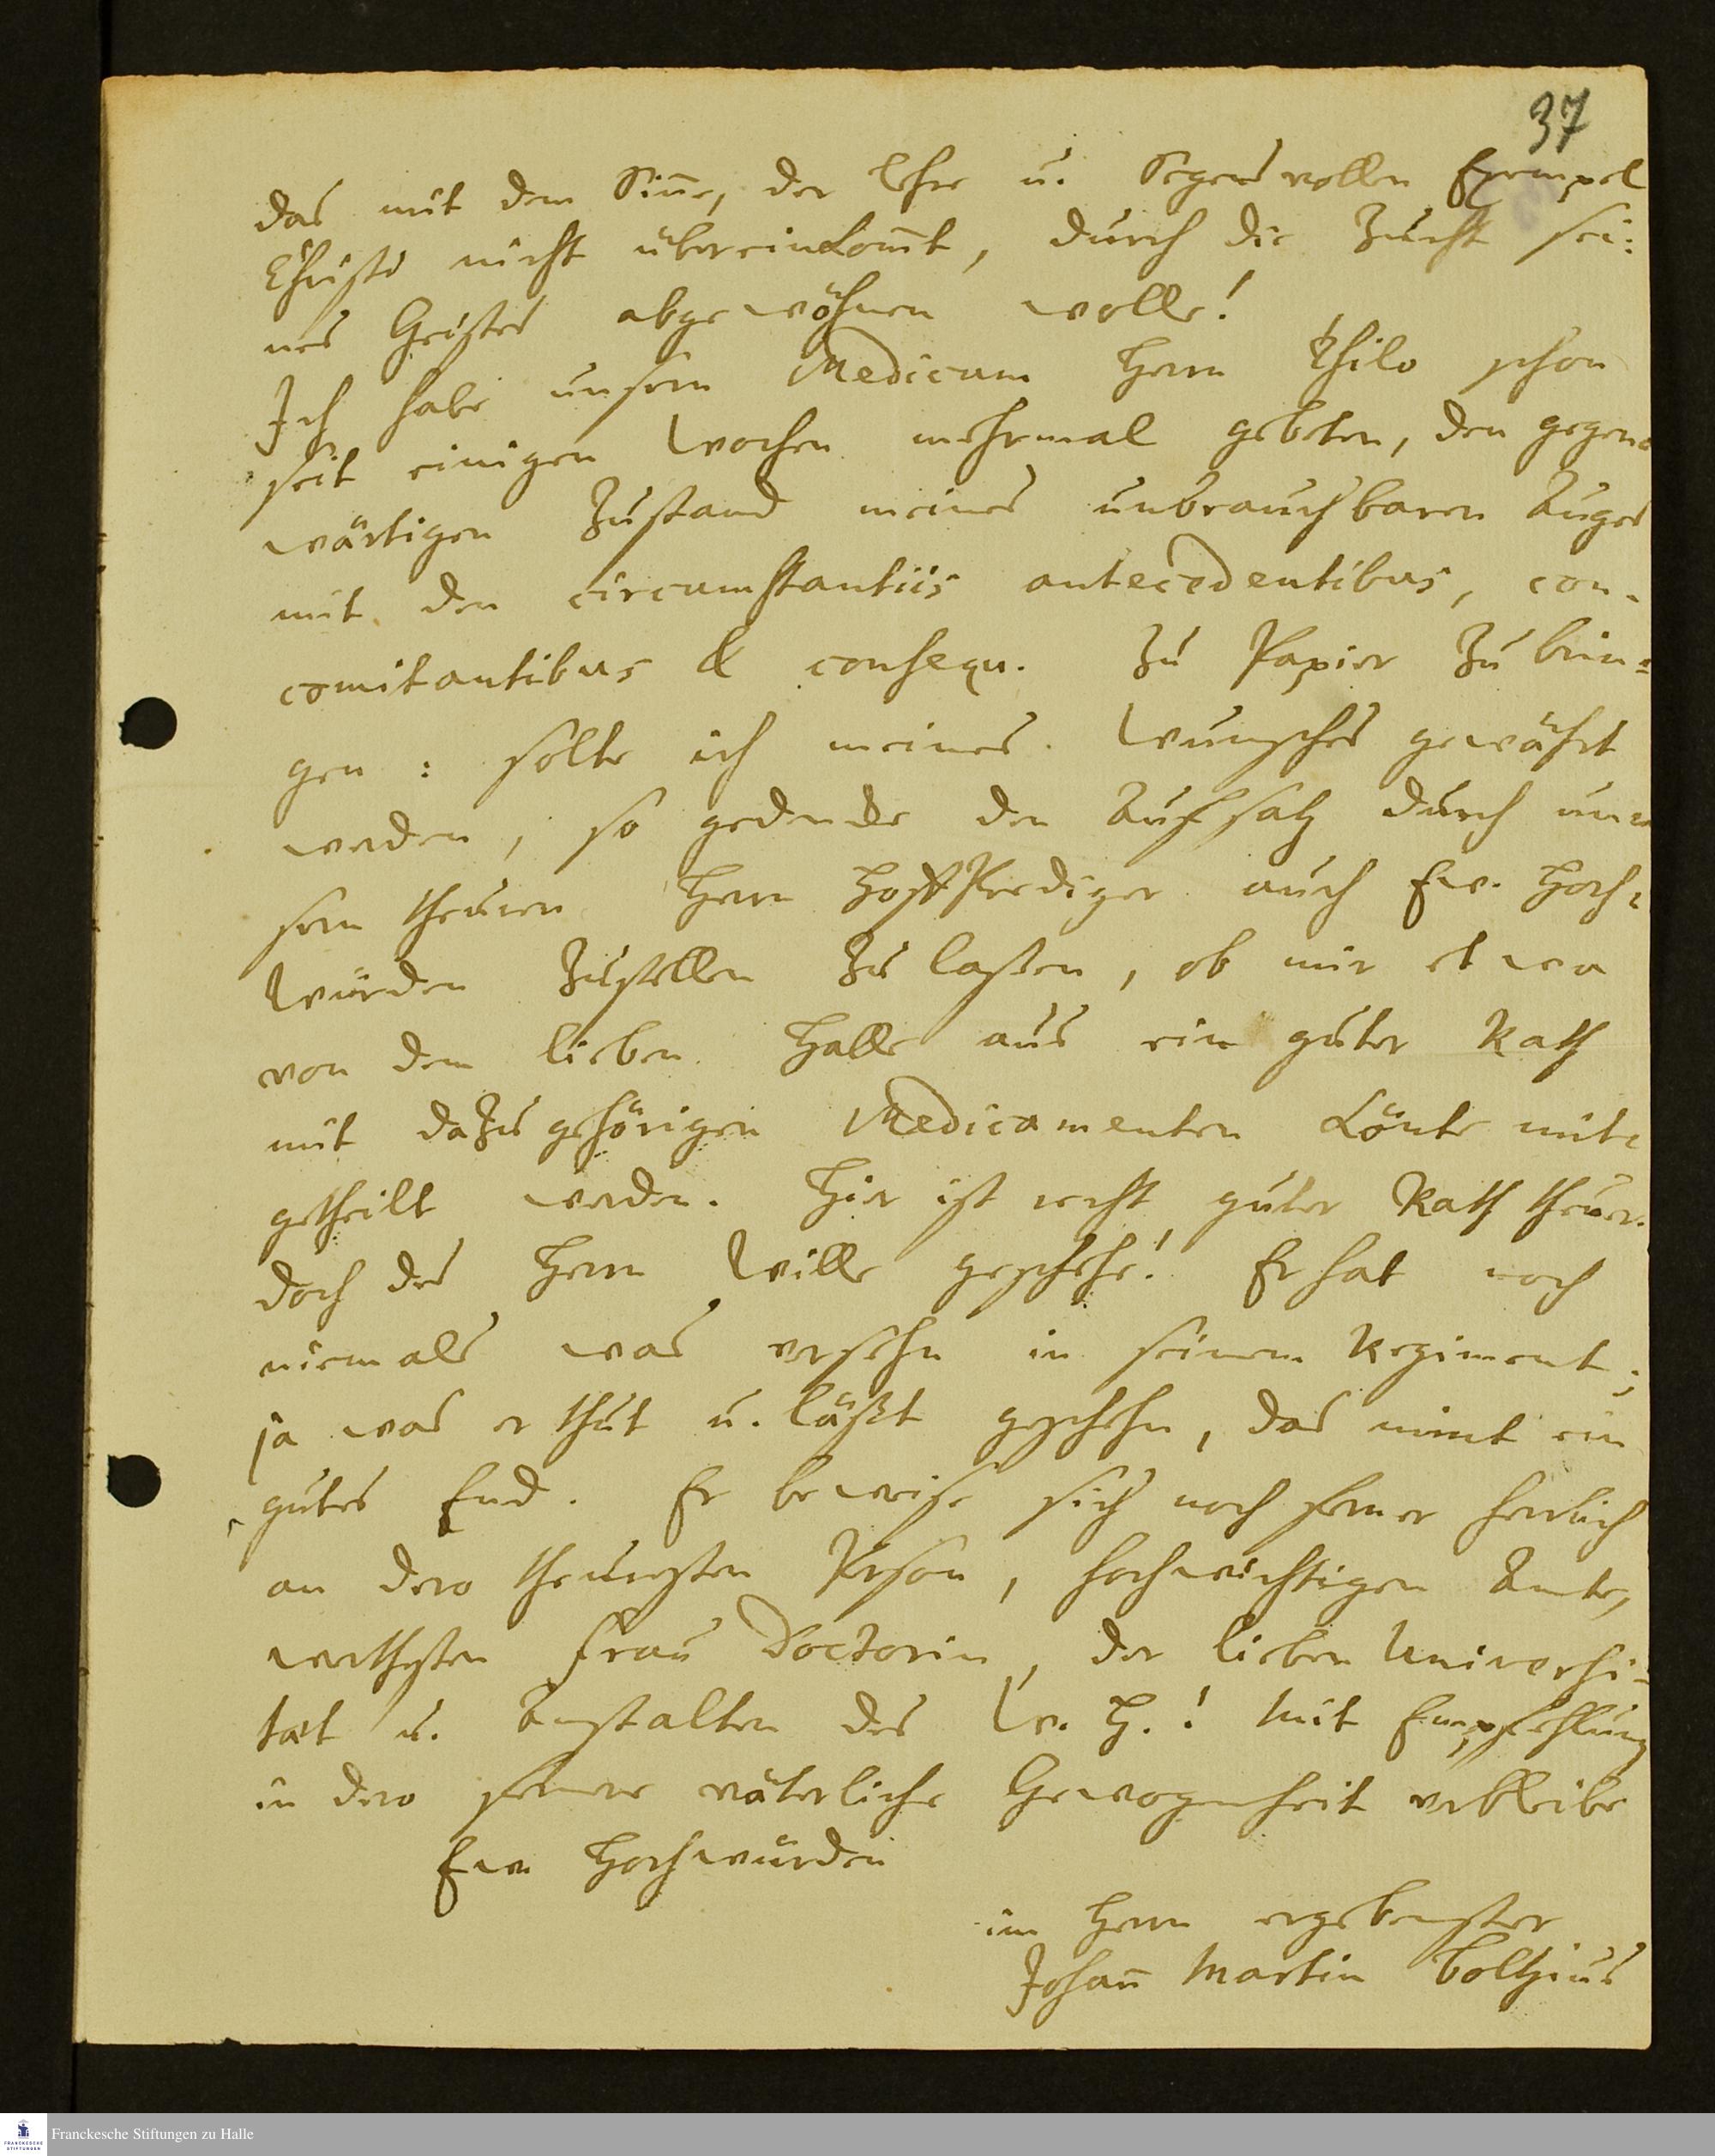 37
das mit dem Siñe, der Lehre u. Segensvollen Exempel
Christi nicht übereinkom̃t, durch die Zucht sei:
nes Geistes abgewöhnen wolle!
Ich habe unsern Medicum Herrn Thilo schon
seit einigen Wochen mehrmal gebeten, den gegen-
wärtigen Zustand meines unbrauchbaren Auges
mit den circumstantiis antecedentibus, con-
comitantibus & consequ. zu Papier zu brin=
gen: solte ich meines Wunsches gewährt
werden, so gedencke den Aufsatz durch un=
sern theuren Herrn HoffPrediger auch Ew. Hoch=
würden zustellen zu laßen, ob mir etwa
von dem lieben Halle aus ein guter Rath
mit dazu gehörigen Medicamenten könte mit=
getheilt werden. Hier ist recht guter Rath theuer.
doch des Herrn Wille geschehe! Er hat noch
niemals was versehn in seinem Regiment;
ja was er thut u. läßt geschehn, das nimt ein
gutes End. Er beweise sich noch ferner herrlich
an dero theuresten Person, hochwichtigen Amte,
werthesten Frau Doctorin, der lieben Universi=
tæt u. Anstalten des W. H.! Mit Empfehlung
in dero fernere väterliche Gewogenheit verbleibe
Ew. Hochwürden
im Herrn ergebenster
Johañ Martin Boltzius
Franckesche Stiftungen zu Halle
FRANCKESCHE
STIFTUNGEN